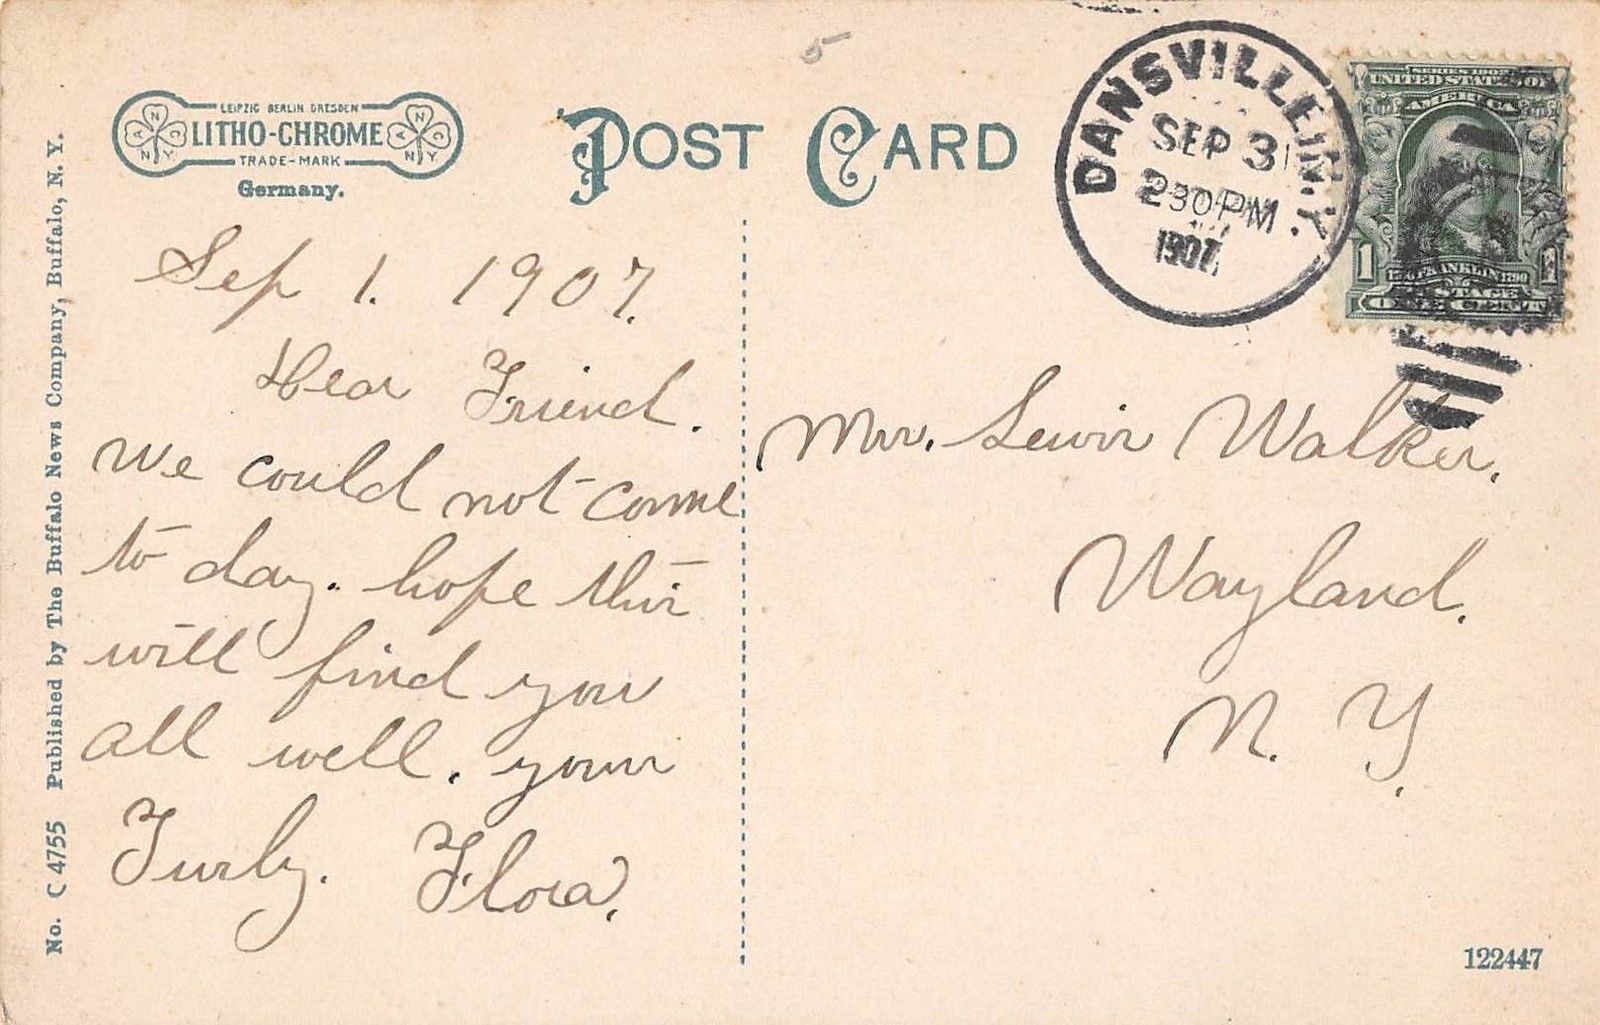 No. C 4755 Published by The Buffalo News Company, Buffalo, N. Y.
LEIPZIG BERLIN DRESDEN
LITHO-CHROME
TRADE-MARK
Germany.
POST CARD
5
DANSVILLE, N.Y.
SEP 3
230 PM
1907
SERIES 1902
UNITED STATES OF
AMERICA
1 1
FRANKLIN
POSTAGE
ONE CENT
Sep 1. 1907.
Dear Friend.
We could not come
to day. hope this
will find you
all well. yours
Truly. Flora.
Mr. Lewis Walker.
Wayland.
N. Y.
122447